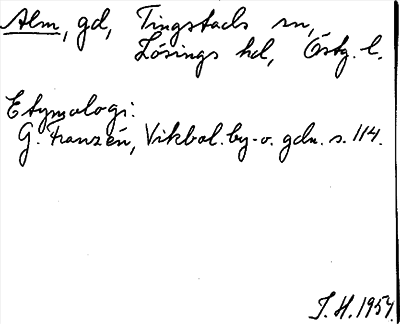 Alm, gd, Tingstads sn,
Lösings hd, Östg. l.
Etymologi:
G. Franzén, Vikbol. by- o. gdn. s. 114.
J. H. 1954.